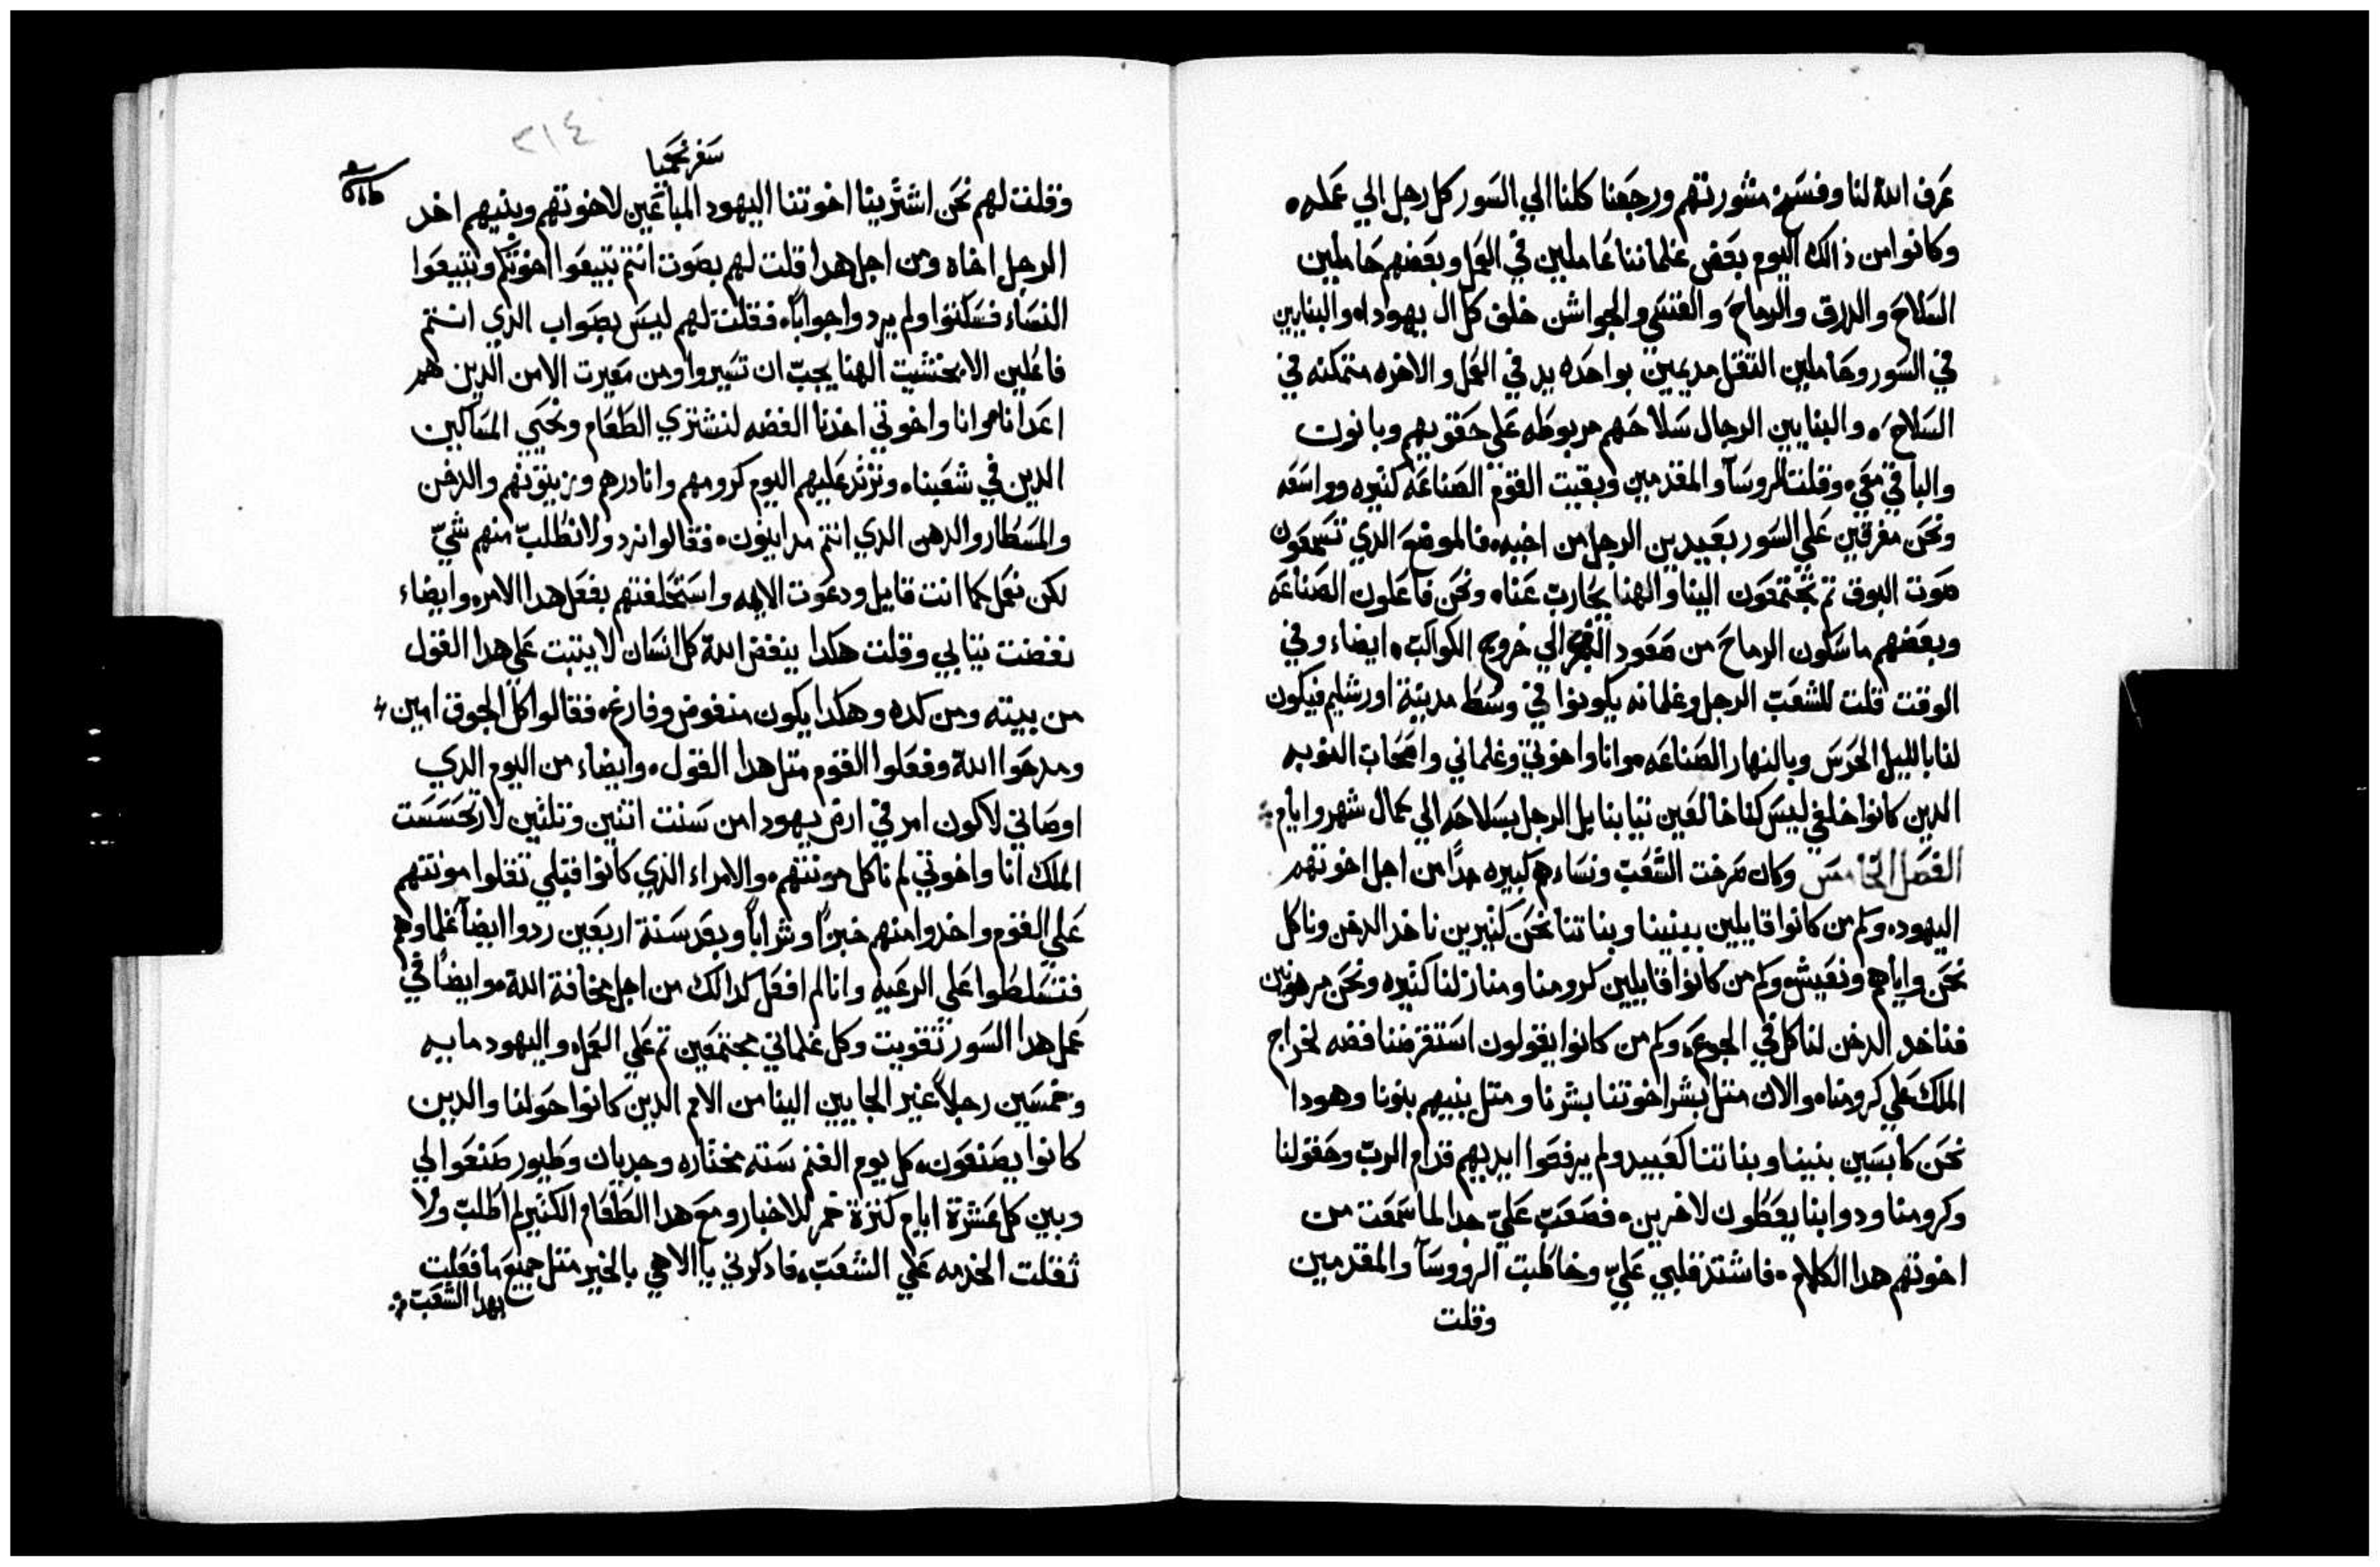 عرف الله لنا وفسخ مشورتهم ورجعنا كلنا الي السور كل رجل الي عمله
وكانوا من ذالك اليوم بعض غلماننا عاملين في العمل وبعضهم حاملين
السلاح والدرق والرماح والقسي والجواشن خلف كل ال يهودا والبنايين
في السور وحاملين التقل مديمين بواحده يد في العمل والاخره متمكنه في
السلاح والبنايين الرجال سلاحهم مربوطه علي حقويهم وبانوت
والباقي معي وقلت للروسآ والمقدمين وبقيت القوم الصناعه كتيره وواسعه
ونحن مفرقين علي السور بعيدين الرجل من اخيه فالموضع الدي تسمعون
صوت البوق تم تجتمعون الينا والهنا يحارب عنا ونحن فاعلون الصناعه
وبعضهم ماسكون الرماح من صعود الفجر الي خروج الكواكب ايضاء وفي
الوقت قلت للشعب الرجل وغلمانه يكونوا في وسط مدينة اورشليم فيكون
لنا بالليل الحرس وبالنهار الصناعه وانا واخوتي وغلماني واصحاب النوبه
الدين كانوا خلفي ليس كنا خالعين تيابنا بل الرجل بسلاحه الي كمال شهر وايام
الفصل الخامس وكان صرخت الشعب ونساءهم كبيره جدًا من اجل اخوتهم
اليهود وكم من كانوا قايلين ببنينا وبناتنا نحن كتيرين ناخد الدخن وناكل
نحن واياهم ونعيش وكم من كانوا قايلين كرومنا ومنازلنا كتيره ونحن مرهونين
فناخد الدخن لناكل في الجوع وكم من كانوا يقولون استقرضنا فضه لخراج
الملك علي كرومنا والان متل بشر اخوتنا بشرنا ومتل بنيهم بنونا وهودا
نحن كابسين بنينا وبناتنا كعبيد ولم يرفعوا ايديهم قدام الرب وحقولنا
وكرومنا ودوابنا يعطون لاخرين فصعب علي جدا لما سمعت من
اخوتهم هدا الكلام فاشتد قلبي علي وخاطبت الرووسآ والمقدمين
وقلت
٢١٤
سفر نحميا
وقلت لهم نحن اشترينا اخوتنا اليهود المباعين لاخوتهم وبنيهم اخد
الرجل اخاه ومن اجل هدا قلت لهم بصوت انتم تبيعوا اخوتكم وتبيعوا
النساء فسكتوا ولم يردوا جوابًا فقلت لهم ليس بصواب الدي انتم
فاعلين الا بخشيت الهنا يجب ان تسيروا ومن معيرت الامن الدين هم
اعدانا وانا واخوتي اخدنا الفضه لنشتري الطعام ونحيي المساكين
الدين في شعبنا ونرد عليهم اليوم كرومهم وانادرهم وزيتونهم والدخن
والمسطار والدهن الدي انتم مداينون فقالوا نرد ولا نطلب منهم شي
لكن نعمل كما انت قايل ودعوت الايمه واستحلفتهم بفعل هدا الامر وايضاء
نفضت تيابي وقلت هكدا ينفض الله كل انسان لا يتبت علي هدا القول
من بيته ومن كده وهكدا يكون منفوض وفارغ فقالوا كل الجوق امين
ومدحوا الله وفعلوا القوم متل هدا القول وايضاء من اليوم الدي
اوصاني لاكون امر في ارض يهودا من سنت اتنين وتلتين لارتحسست
الملك انا واخوتي لم ناكل مونتهم والامراء الدي كانوا قبلي تقلوا مونتهم
علي القوم واخدوا منهم خبزًا وشرابًا وبعد سنة اربعين ردوا ايضآ غلماوهم
فتسلطوا علي الرعيه وانا لم افعل كدالك من اجل مخافة الله وايضًا في
عمل هدا السور تقويت وكل غلماني مجتمعين تم علي العمل واليهود مايه
وخمسين رجلاً غير الجايين الينا من الامم الدين كانوا حولنا والدين
كانوا يصنعون كل يوم الغنم سته مختاره وجديان وطيور صنعوا لي
وبين كل عشرة ايام كترة خمر للاخبار ومع هدا الطعام الكتير لم اطلب ولا
ثقلت الخدمه علي الشعب فادكرني يا الاهي بالخير متل جميع ما فعلت
بهدا الشعب